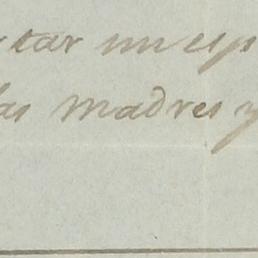 tar un esp
las madres y